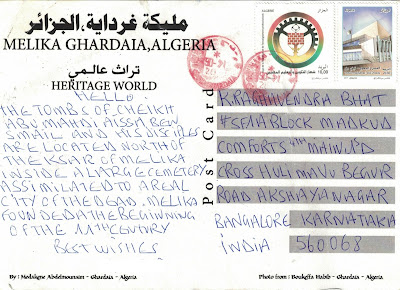 مليكة غرداية، الجزائر
MELIKA GHARDAIA, ALGERIA
تراث عالمي
HERITAGE WORLD
HELLO.
THE TOMBS OF CHEIKH
ABU MAHDI AISSA BEN
SMAIL AND HIS DISCIPLES
ARE LOCATED NORTH OF
THE KSAR OF MELIKA
INSIDE A LARGE CEMETERY
ASSIMILATED TO A REAL
CITY OF THE DEAD. MELIKA
FOUNDED AT HE BEGINNING
OF THE 11TH CENTURY
BEST WISHES
By : Medaigne Abdelmoumain - Ghardaia - Algeria
Post Card
R. RAGHAVENDRA BHAT
BLOCK
COMFORTS 4TH MAIN
CROSS HULIMAVU BEGUR
ROAD AKSHAYANAGAR
BANGALORE KARNATAKA
INDIA 560068
Photo from : Boukeffa Habib - Ghardaia - Algeria